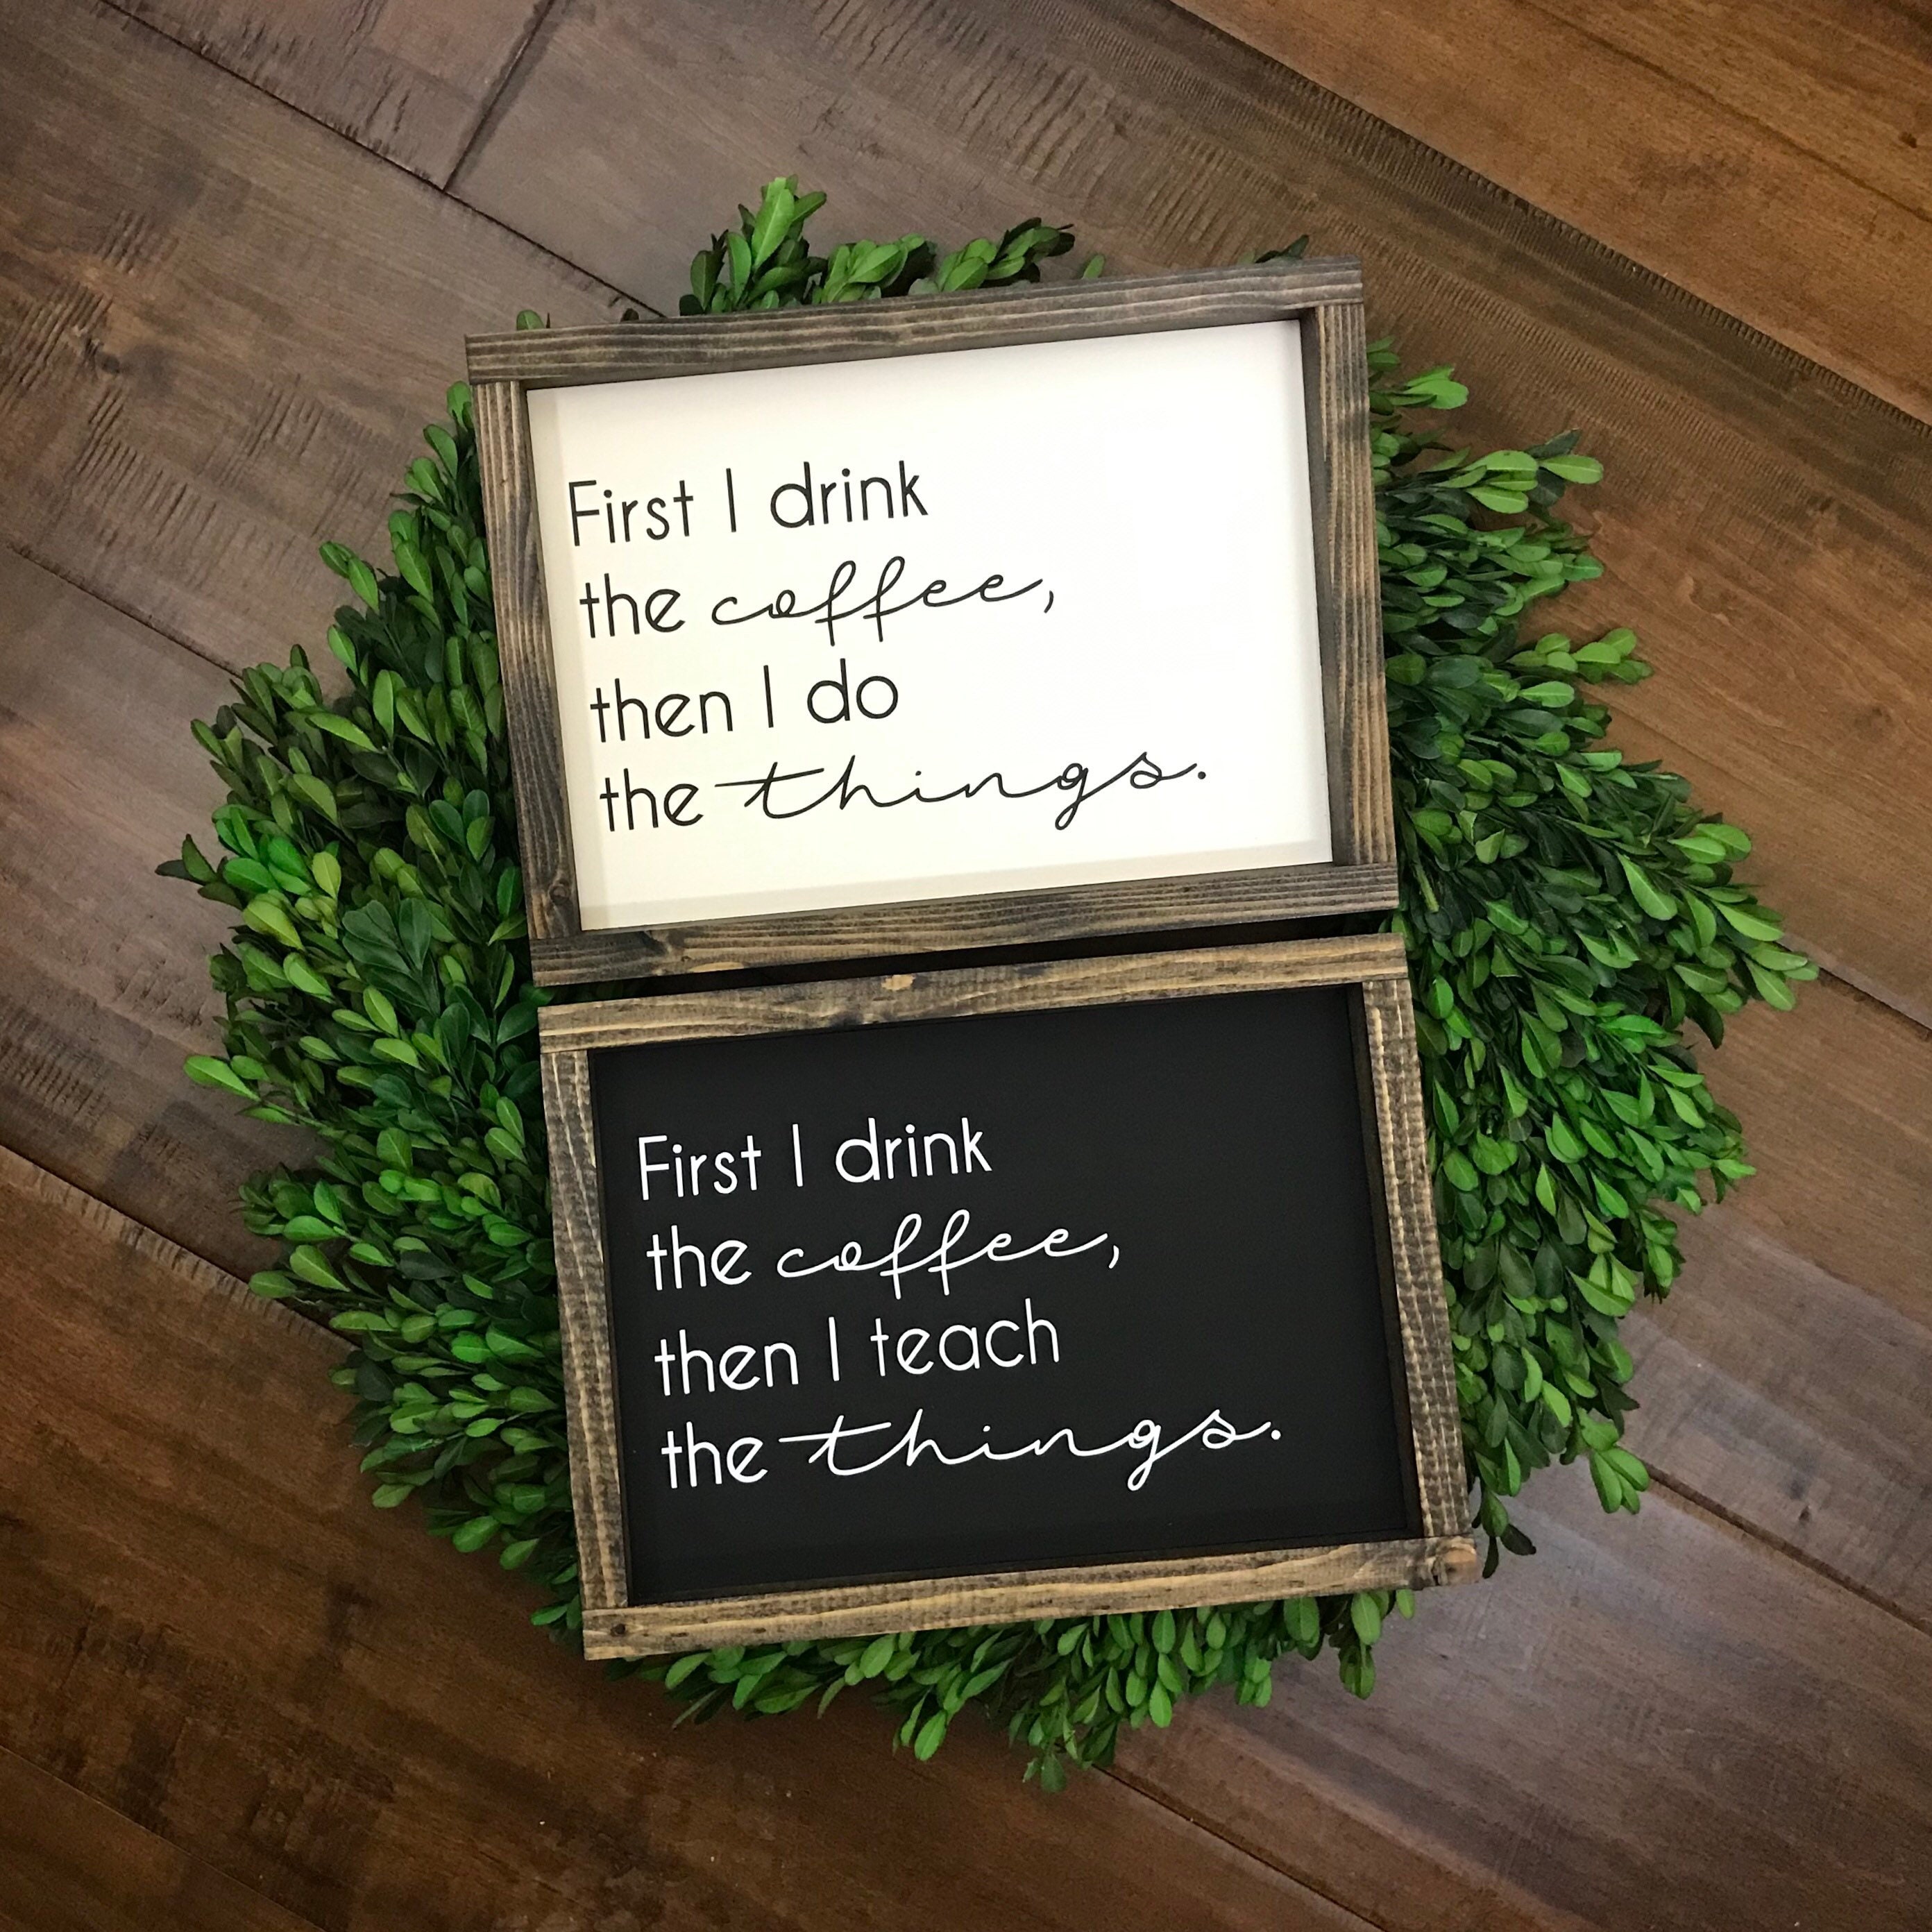 First I drink
the coffee,
then I do
the things.
First I drink
the coffee,
then I teach
the things.